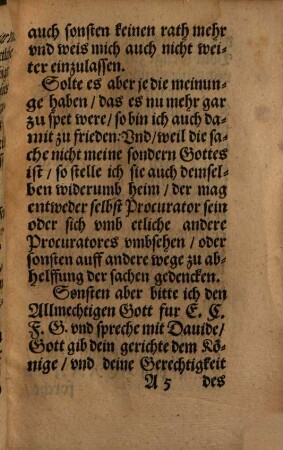 auch sonsten keinen rath mehr
vnd weis mich auch nicht wei-
ter einzulassen.
Solte es aber je die meinun-
ge haben / das es nu mehr gar
zu spet were / so bin ich auch da-
mit zu frieden: Vnd / weil die sa-
che nicht meine sondern Gottes
ist / so stelle ich sie auch demsel-
ben widerumb heim / der mag
entweder selbst Procurator sein
oder sich vmb etliche andere
Procuratores vmbsehen / oder
sonsten auff andere wege zu ab-
helffung der sachen gedencken.
Sonsten aber bitte ich den
Allmechtigen Gott fur E. C.
F. G. vnd spreche mit Dauide /
Gott gib dein gerichte dem Kö-
nige / vnd deine Gerechtigkeit
A 5 des